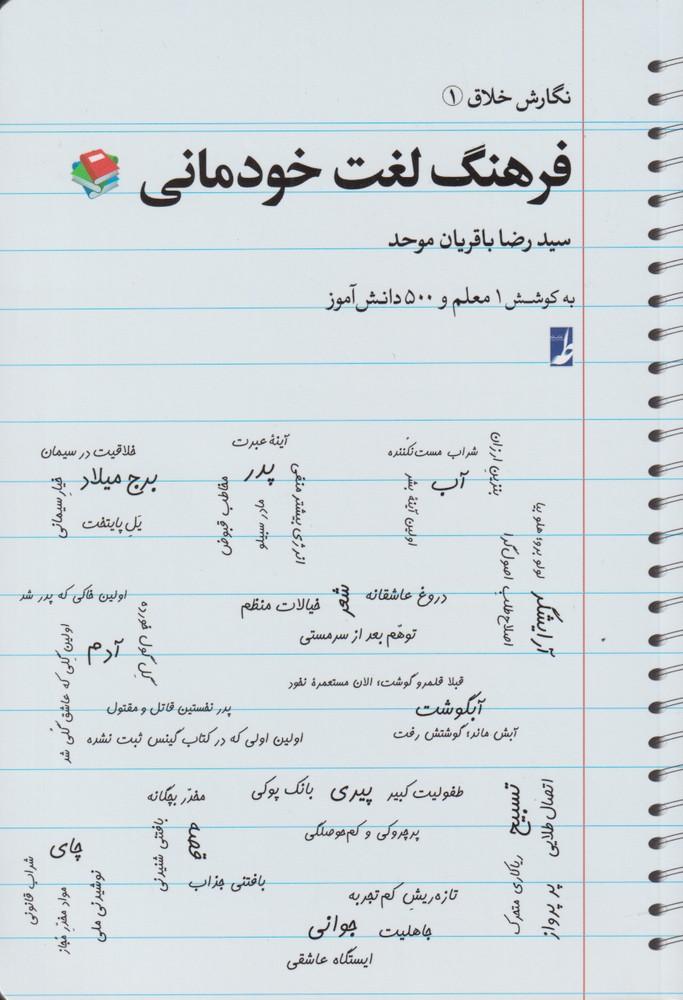 نگارش خلاق ①
فرهنگ لغت خودمانی
سید رضا باقریان موحد
به کوشش ۱ معلم و ۵۰۰ دانش‌آموز
بنزین ارزان
شراب مست‌نکننده
آب
اولین آینهٔ بشر
آینهٔ عبرت
پدر
انرژی بیشتر منفی
مادر سیبلو
مخاطب قبوض
خلاقیت در سیمان
برج میلاد
خیار سیمانی
یَلِ پایتخت
لولو برو؛ هلو بیا
آرایشگر
اصلاح‌طلب اصول‌گرا
دروغ عاشقانه
شعر
خیالات منظم
توهّم بعد از سرمستی
اولین خاکی که پدر شد
آدم
گِلِ گول خورده
اولین گِلی که عاشق گُلی شد
پدر نخستین قاتل و مقتول
اولین اولی که در کتاب گینس ثبت نشده
قبلا قلمرو گوشت؛ الان مستعمرهٔ نخود
آبگوشت
آبش ماند؛ گوشتش رفت
اتصال طلایی
تسبیح
ریاکاری متحرک
پر پرواز
طفولیت کبیر
پیری
بانک پوکی
پرچروکی و کم‌حوصلگی
مخدّر بچگانه
قصه
بافتنی شنیدنی
بافتنی جذاب
چای
شراب قانونی
مواد مخدّر مُجاز
نوشیدنی ملی
تازه‌ریشِ کم‌تجربه
جوانی
جاهلیت
ایستگاه عاشقی